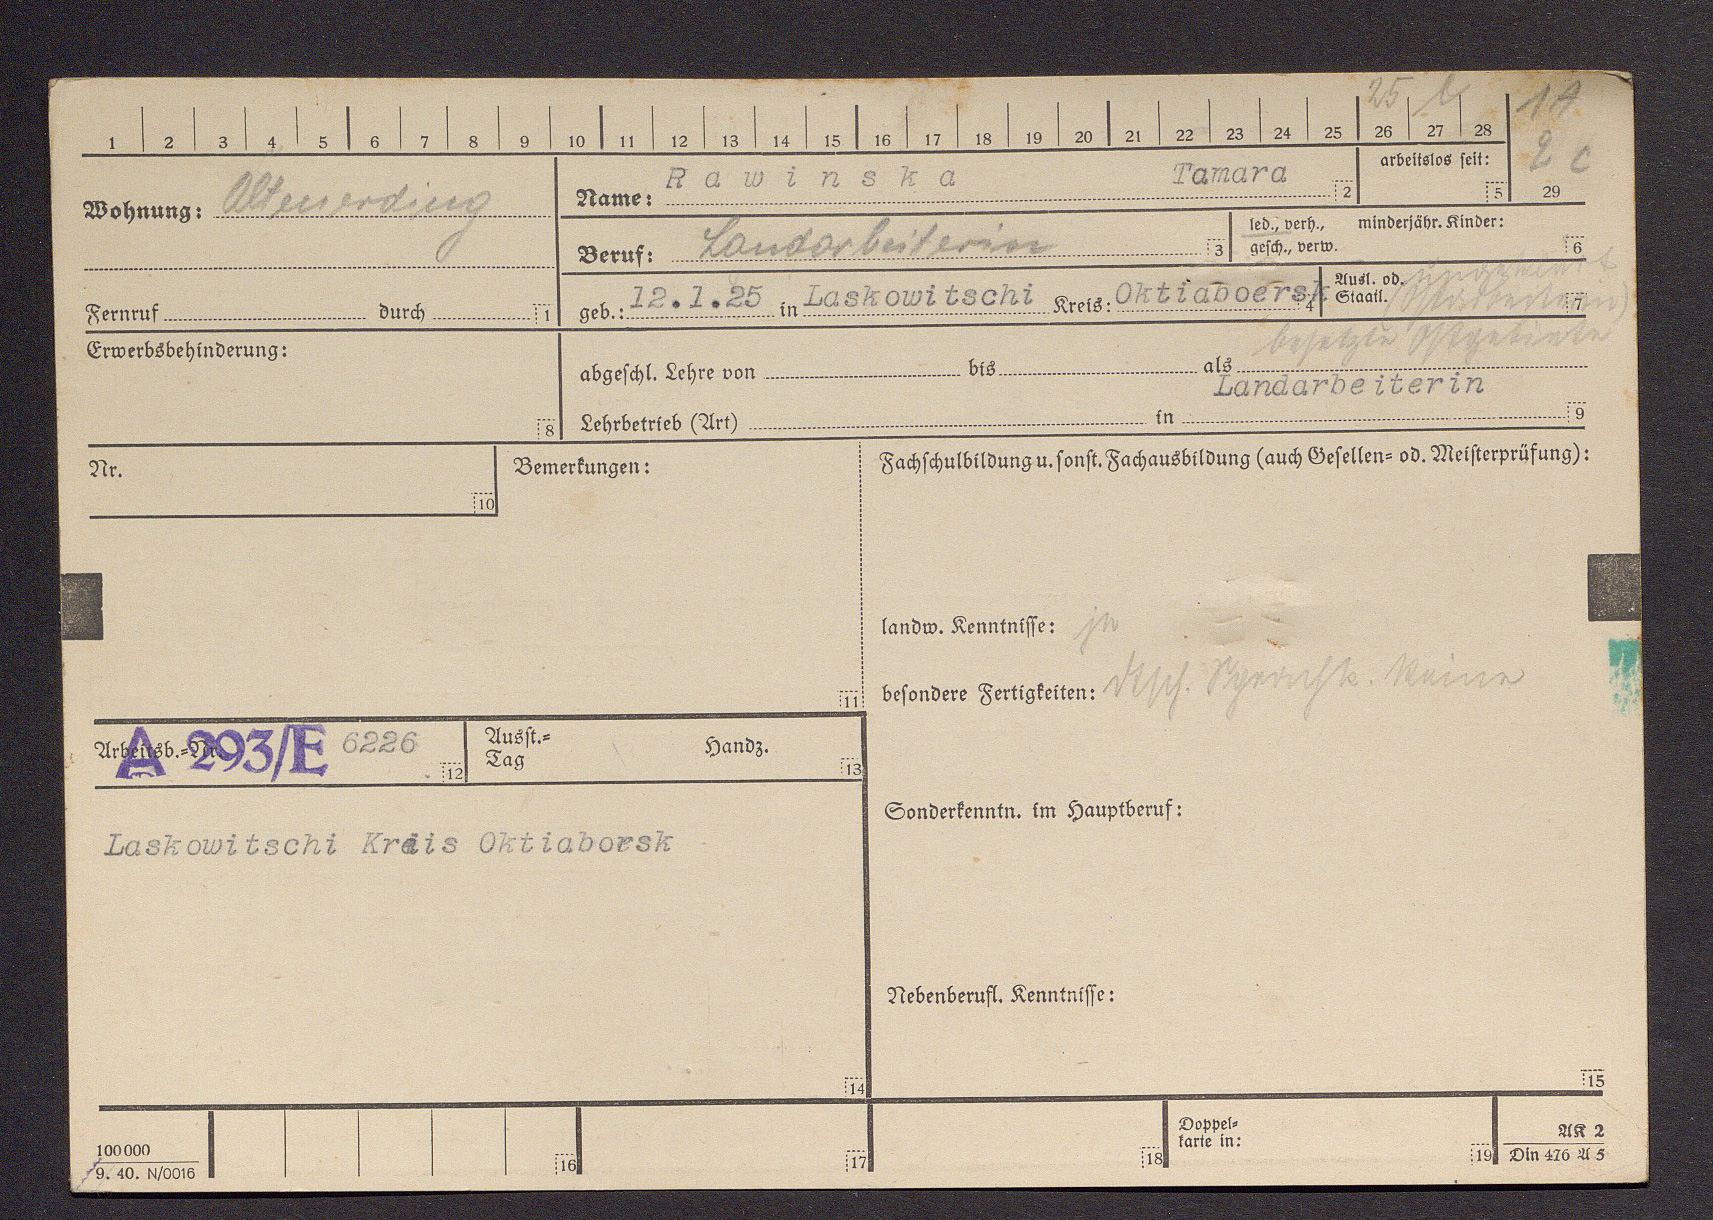 25 l
1A
1 2 3 4 5 6 7 8 9 10 11 12 13 14 15 16 17 18 19 20 21 22 23 24 25 26 27 28
2 c
29
Wohnung: Altenerding
Name: Rawinska Tamara 2
arbeitslos seit: 5
Beruf: Landarbeiterin 3
led., verh., gesch., verw.
minderjähr. Kinder: 6
Fernruf durch 1
geb.: 12.1.25 in Laskowitschi Kreis: Oktiaboersk 4
Ausl. od. Staatl. ungeklärt 7
besetzte Ostgebiete
Erwerbsbehinderung: 8
abgeschl. Lehre von bis als
Landarbeiterin
Lehrbetrieb (Art) in 9
Nr. 10
Bemerkungen: 11
Fachschulbildung u. sonst. Fachausbildung (auch Gesellen= od. Meisterprüfung):
landw. Kenntnisse: ja
besondere Fertigkeiten: dtsch. Sprachk. keine
Arbeitsb.=Nr. A 293/E 6226 12
Ausst.= Tag Handz. 13
Laskowitschi Kreis Oktiaborsk
14
Sonderkenntn. im Hauptberuf:
Nebenberufl. Kenntnisse:
15
100000
9. 40. N/0016
16 17 18
Doppel= karte in: 19
AK 2
Din 476 A 5